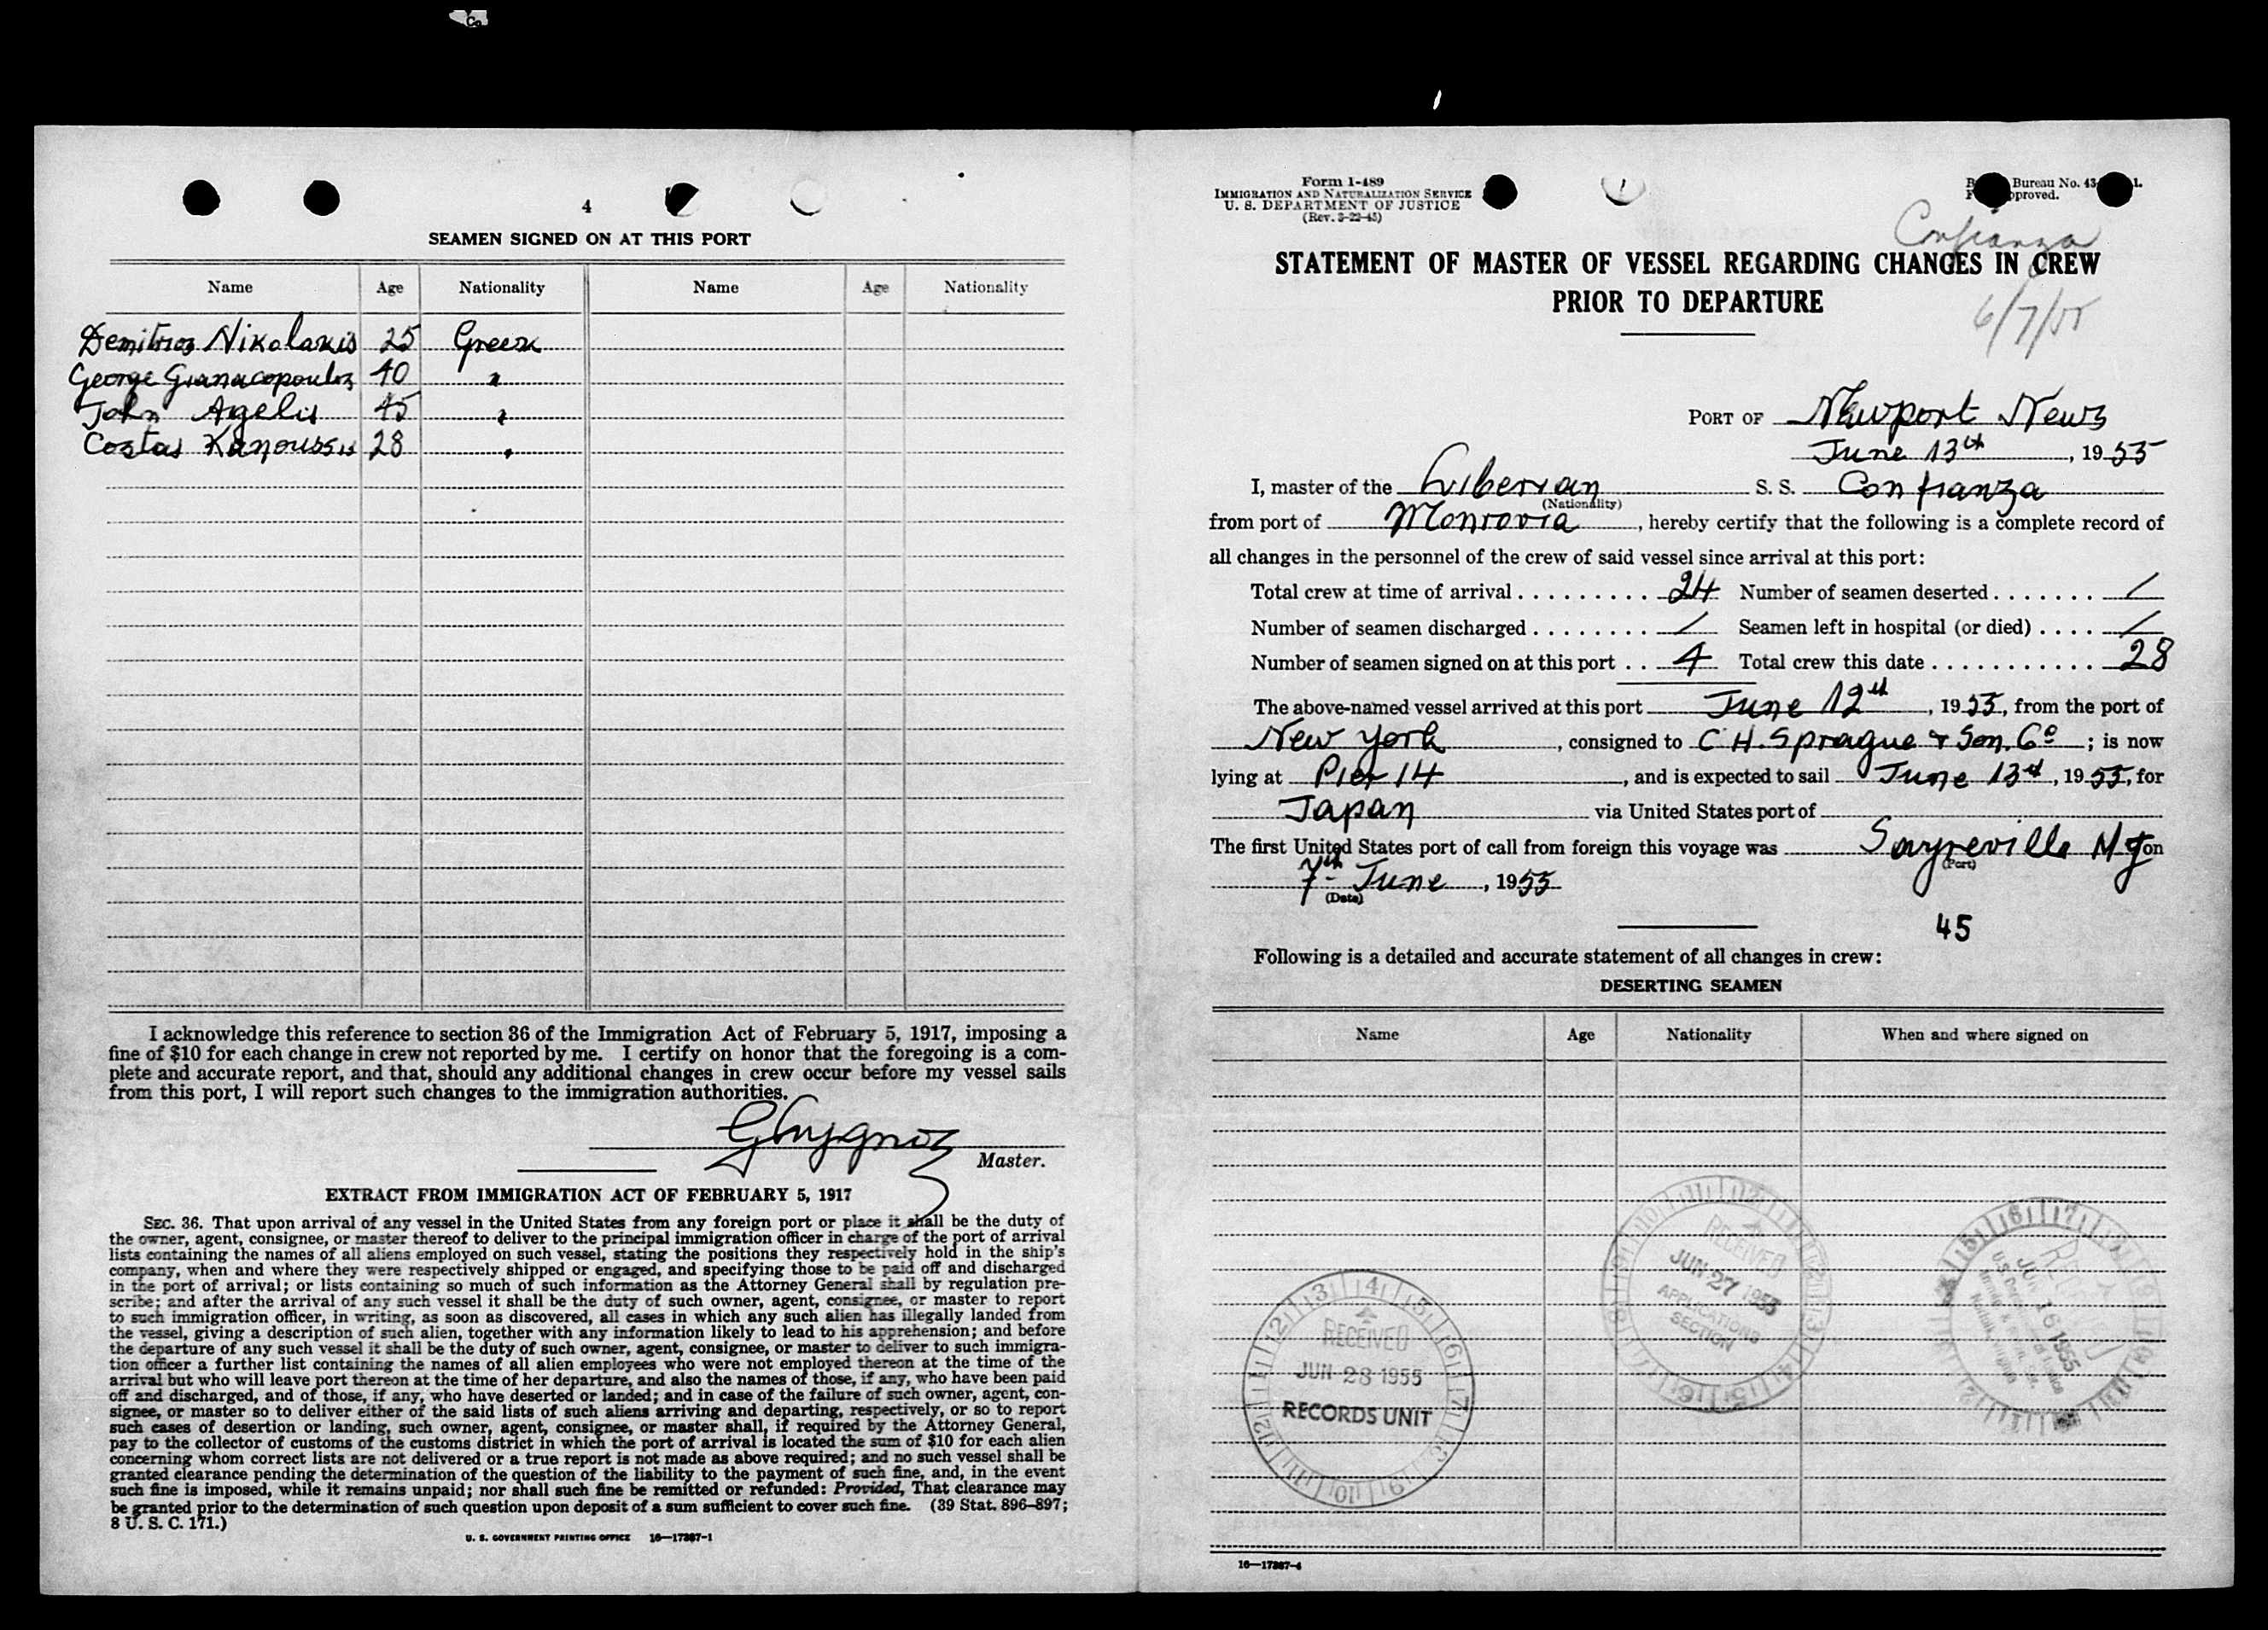 Co
4
SEAMEN SIGNED ON AT THIS PORT
Name Age Nationality Name Age Nationality
Demitrios Nikolakis 25 Greek
George Gianacopoulos 40 "
John Agelis 45 "
Costas Kanoussis 28 "
I acknowledge this reference to section 36 of the Immigration Act of February 5, 1917, imposing a
fine of $10 for each change in crew not reported by me. I certify on honor that the foregoing is a com-
plete and accurate report, and that, should any additional changes in crew occur before my vessel sails
from this port, I will report such changes to the immigration authorities.
Master.
EXTRACT FROM IMMIGRATION ACT OF FEBRUARY 5, 1917
SEC. 36. That upon arrival of any vessel in the United States from any foreign port or place it shall be the duty of
the owner, agent, consignee, or master thereof to deliver to the principal immigration officer in charge of the port of arrival
lists containing the names of all aliens employed on such vessel, stating the positions they respectively hold in the ship's
company, when and where they were respectively shipped or engaged, and specifying those to be paid off and discharged
in the port of arrival; or lists containing so much of such information as the Attorney General shall by regulation pre-
scribe; and after the arrival of any such vessel it shall be the duty of such owner, agent, consignee, or master to report
to such immigration officer, in writing, as soon as discovered, all cases in which any such alien has illegally landed from
the vessel, giving a description of such alien, together with any information likely to lead to his apprehension; and before
the departure of any such vessel it shall be the duty of such owner, agent, consignee, or master to deliver to such immigra-
tion officer a further list containing the names of all alien employees who were not employed thereon at the time of the
arrival but who will leave port thereon at the time of her departure, and also the names of those, if any, who have been paid
off and discharged, and of those, if any, who have deserted or landed; and in case of the failure of such owner, agent, con-
signee, or master so to deliver either of the said lists of such aliens arriving and departing, respectively, or so to report
such cases of desertion or landing, such owner, agent, consignee, or master shall, if required by the Attorney General,
pay to the collector of customs of the customs district in which the port of arrival is located the sum of $10 for each alien
concerning whom correct lists are not delivered or a true report is not made as above required; and no such vessel shall be
granted clearance pending the determination of the question of the liability to the payment of such fine, and, in the event
such fine is imposed, while it remains unpaid; nor shall such fine be remitted or refunded: Provided, That clearance may
be granted prior to the determination of such question upon deposit of a sum sufficient to cover such fine. (39 Stat. 896–897;
8 U. S. C. 171.)
U. S. GOVERNMENT PRINTING OFFICE 16—17387-1
Form I-489
IMMIGRATION AND NATURALIZATION SERVICE
U. S. DEPARTMENT OF JUSTICE
(Rev. 3-22-45)
Bureau No. 43-
pproved.
Confianza
STATEMENT OF MASTER OF VESSEL REGARDING CHANGES IN CREW
PRIOR TO DEPARTURE
6/7/55
PORT OF Newport News
June 13th, 1955
I, master of the Liberian S. S. Confianza
(Nationality)
from port of Monrovia, hereby certify that the following is a complete record of
all changes in the personnel of the crew of said vessel since arrival at this port:
Total crew at time of arrival 24 Number of seamen deserted /
Number of seamen discharged / Seamen left in hospital (or died) /
Number of seamen signed on at this port 4 Total crew this date 28
The above-named vessel arrived at this port June 12th, 1955, from the port of
New York, consigned to C. H. Sprague & Son. Co; is now
lying at Pier 14, and is expected to sail June 13th, 1955, for
Japan via United States port of
The first United States port of call from foreign this voyage was Sayreville NJ on
(Port)
7th June, 1955
(Date)
45
Following is a detailed and accurate statement of all changes in crew:
DESERTING SEAMEN
Name Age Nationality When and where signed on
RECEIVED
JUN 27 1955
APPLICATIONS
SECTION
JUN 16 1955
RECEIVED
JUN 28 1955
RECORDS UNIT
16—17387-4